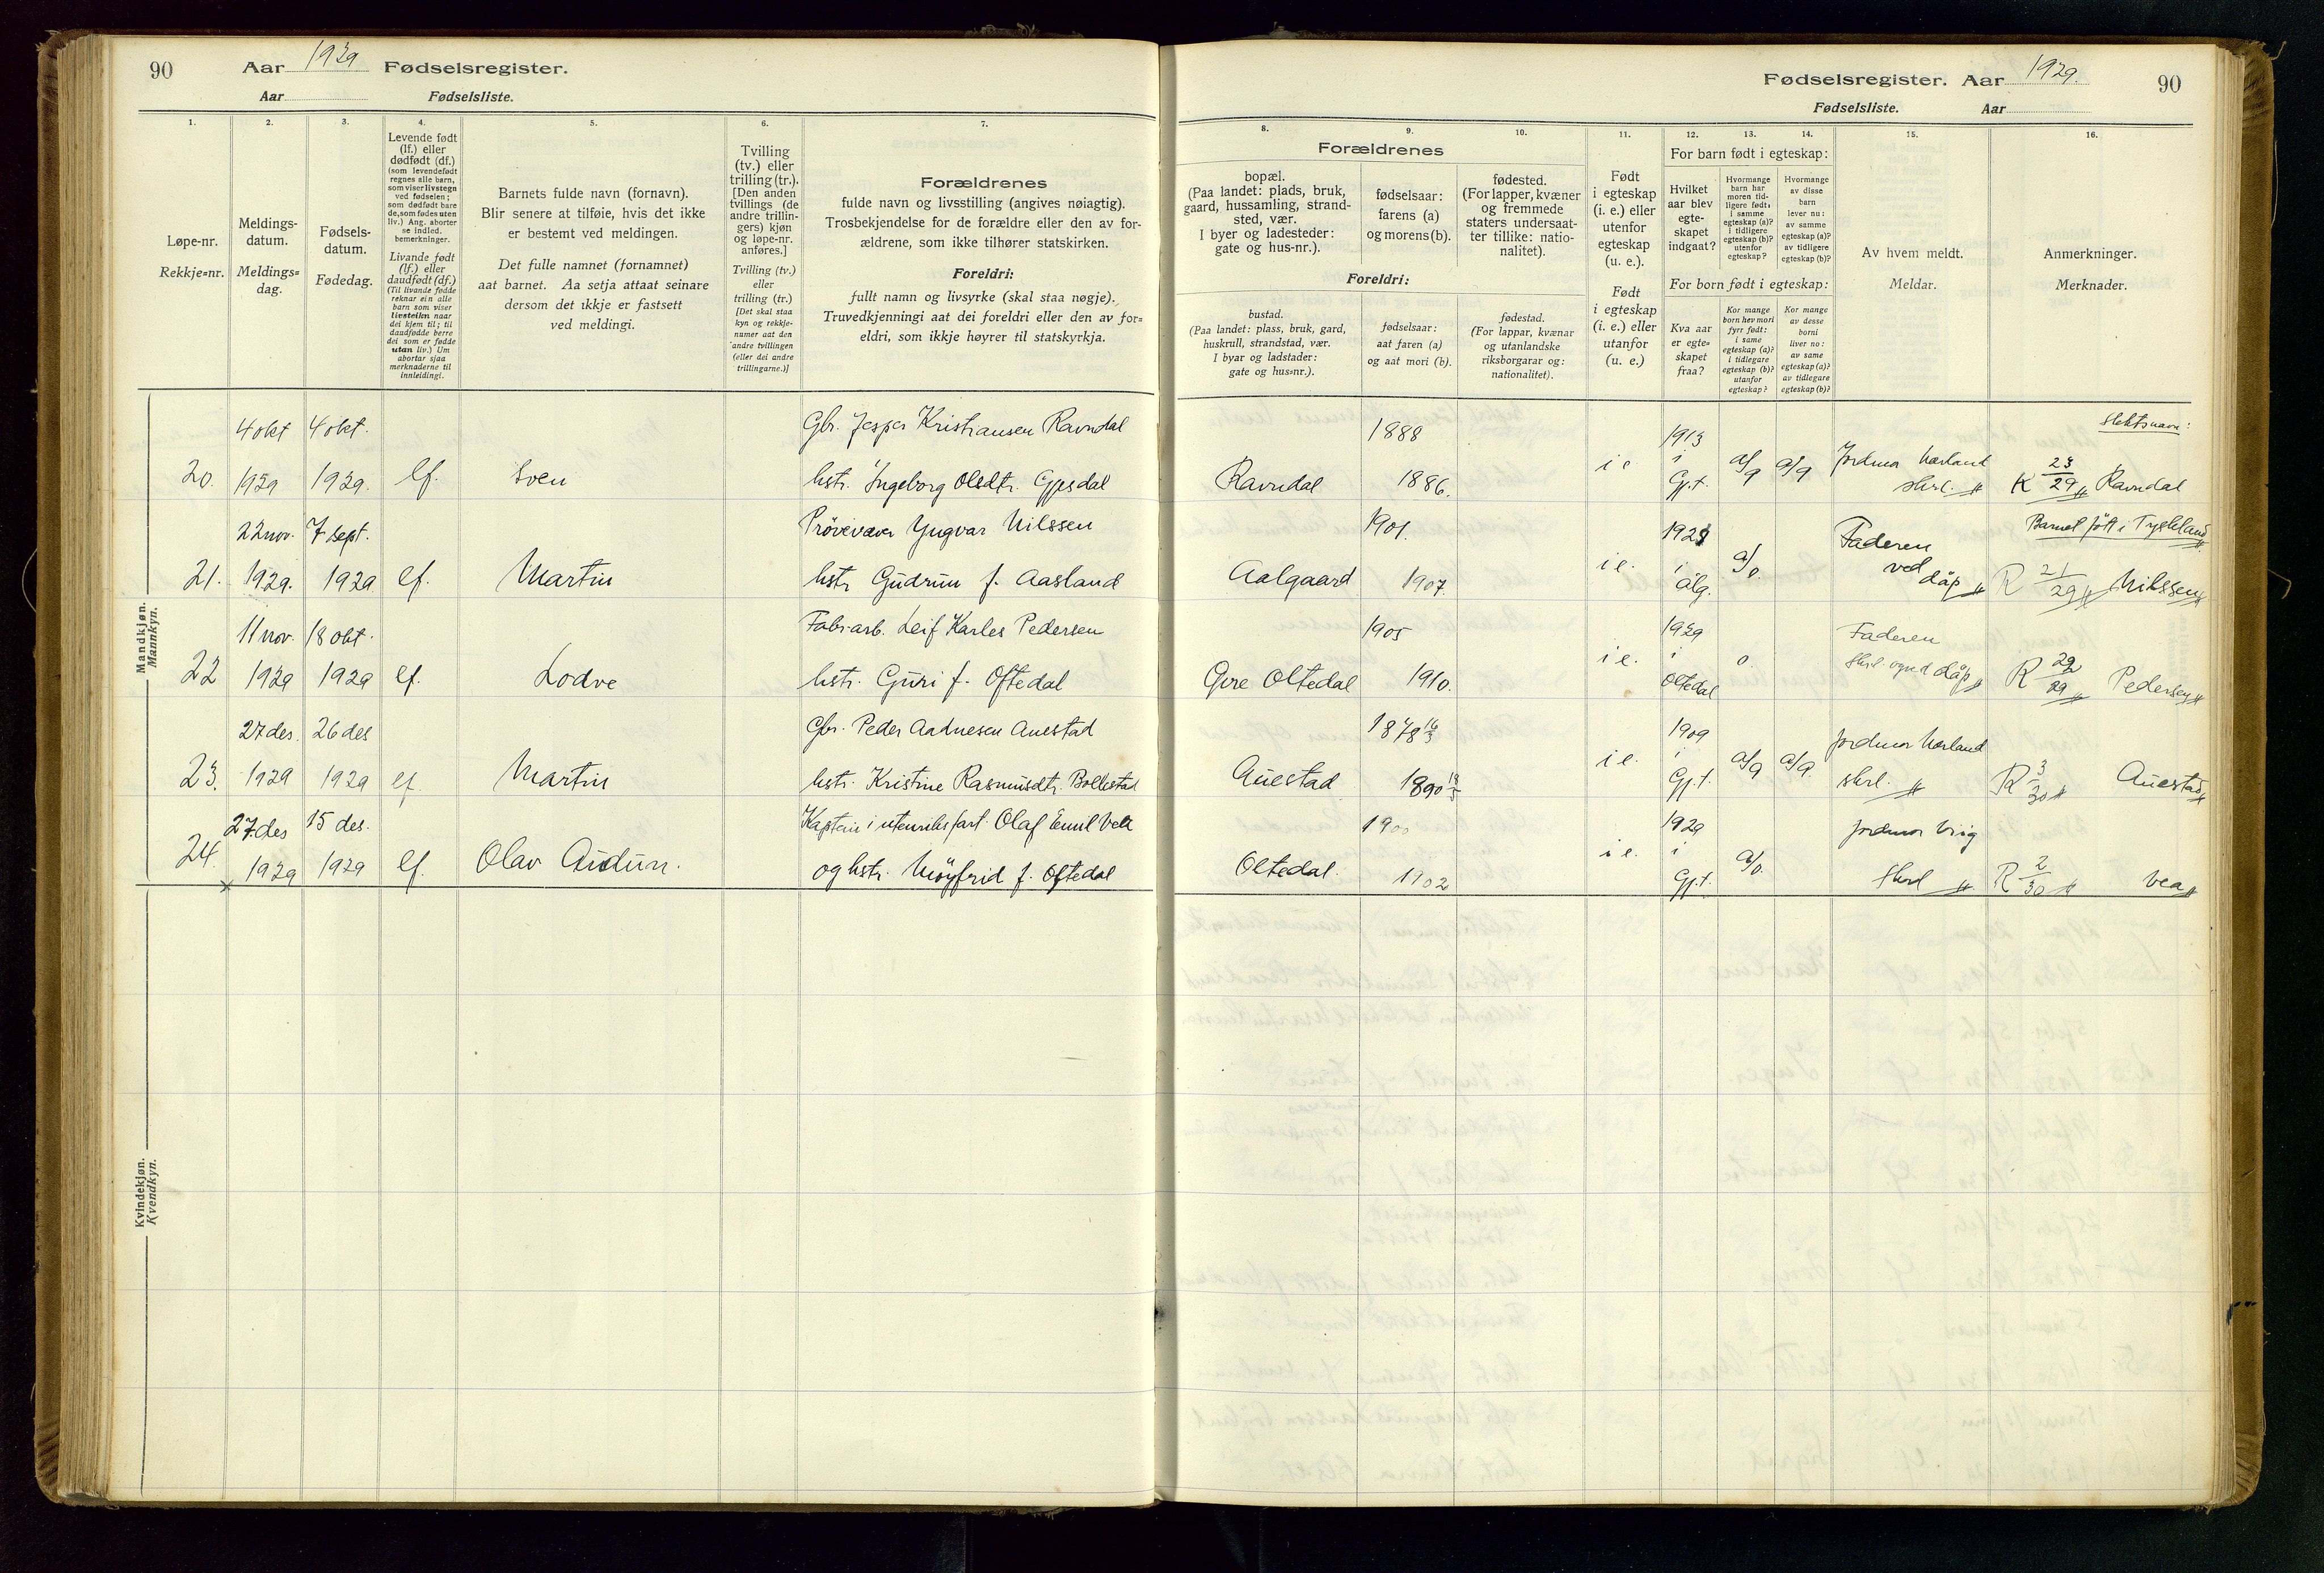 90
Aar 1929 Fødselsregister.
Aar Fødselsliste.
1.
Løpe-nr.
Rekkje=nr.
2.
Meldings-
datum.
Meldings=
dag.
3.
Fødsels-
datum.
Fødedag.
4.
Levende født
(lf.) eller
dødfødt (df.)
(som levendefødt
regnes alle barn,
som viser livstegn
ved fødselen;
som dødfødt bare
de, som fødes uten
liv.) Ang. aborter
se indled.
bemerkninger.
Livande født
(lf.) eller
daudfødt (df.)
(Til livande fødde
reknar ein alle
barn som viser
livsteikn naar
dei kjem til; til
daudfødde berre
dei som er fødde
utan liv.) Um
abortar sjaa
merknaderne til
innleidingi.
5.
Barnets fulde navn (fornavn).
Blir senere at tilføie, hvis det ikke
er bestemt ved meldingen.
Det fulle namnet (fornamnet)
aat barnet. Aa setja attaat seinare
dersom det ikkje er fastsett
ved meldingi.
6.
Tvilling
(tv.) eller
trilling (tr.).
[Den anden
tvillings (de
andre trillin-
gers) kjøn
og løpe-nr.
anføres.]
Tvilling (tv.)
eller
trilling (tr.)
[Det skal staa
kyn og rekkje-
numer aat den
andre tvillingen
(eller dei andre
trillingarne.)]
7.
Forældrenes
fulde navn og livsstilling (angives nøiagtig).
Trosbekjendelse for de forældre eller den av for-
ældrene, som ikke tilhører statskirken.
Foreldri:
fullt namn og livsyrke (skal staa nøgje).
Truvedkjenningi aat dei foreldri eller den av for=
eldri, som ikkje høyrer til statskyrkja.
Mandkjøn.
Mannkyn.
4 okt 4 okt. Gbr. Jesper Kristiansen Ravndal
20. 1929 1929. lf. Sven hstr. Ingeborg Olsdtr. Gjesdal
22 nov. 7 sept. Prøvevæver Yngvar Nilssen
21. 1929. 1929 lf. Martin hstr. Gudrun f. Aasland
11 nov. 18 okt. Fabr.arb. Leif Karles Pedersen
22 1929 1929 lf. Lodve hstr. Guri f. Oftedal
27 des. 26 des Gbr. Peder Aadnesen Auestad
23. 1929 1929 lf. Martin hstr. Kristine Rasmusdtr. Bollestad
27 des 15 des. Kaptein i utenriksfart Olaf Emil Vea
24. 1929 1929 lf. Olav Audun. og hstr. Møyfrid f. Oftedal
Kvindekjøn.
Kvendkyn.
Fødselsregister. Aar 1929. 90
Fødselsliste. Aar
8.
Forældrenes
bopæl.
(Paa landet: plads, bruk,
gaard, hussamling, strand-
sted, vær.
I byer og ladesteder:
gate og hus-nr.).
Foreldri:
bustad.
(Paa landet: plass, bruk, gard,
huskrull, strandstad, vær.
I byar og ladstader:
gate og hus=nr.).
9.
fødselsaar:
farens (a)
og morens (b).
fødselsaar:
aat faren (a)
og aat mori (b).
10.
fødested.
(For lapper, kvæner
og fremmede
staters undersaat-
ter tillike: natio-
nalitet).
fødestad.
(For lappar, kvænar
og utanlandske
riksborgarar og:
nationalitet).
11.
Født
i egteskap
(i. e.) eller
utenfor
egteskap
(u. e.).
Født
i egteskap
(i. e.) eller
utanfor
(u. e.)
12. 13. 14.
For barn født i egteskap:
Hvilket
aar blev
egte-
skapet
indgaat?
Hvormange
barn har
moren tid-
ligere født:
i samme
egteskap (a)?
i tidligere
egteskap (b)?
utenfor
egteskap?
Hvormange
av disse
barn
lever nu:
av samme
egteskap (a)?
av tidligere
egteskap (b)?
For born født i egteskap:
Kva aar
er egte=
skapet
fraa?
Kor mange
born hev mori
fyrr født:
i same
egteskap (a)?
i tidlegare
egteskap (b)?
utanfor
egteskap?
Kor mange
av desse
borni
liver no:
av same
egteskap (a)?
av tidlegare
egteskap (b)?
15.
Av hvem meldt.
Meldar.
16.
Anmerkninger.
Merknader.
1888 1913 Slektsnavn:
Ravndal 1886. i e. i Gj.t. a/9 a/9 Jordmor Hærland skrl. K 23/29 Ravndal
1901. Barnet født i Tyskland
Aalgaard 1907. i e. i Ålg. a/0. Faderen ved dåp R 21/29 Nilssen
1905 1929
Øvre Oltedal 1910. i e. i Oltedal 0. Faderen skrl. og ved dåp R 22/29 Pedersen
1878 16/3 1909
Auestad 1890 i e. i Gj.t. a/9 a/9. Jordmor Hærland skrl. R 3/30 Auestad
1900 1929
Oltedal. 1902 i e. i Gj.t. a/0. Jordmor skrl R 2/30 Vea